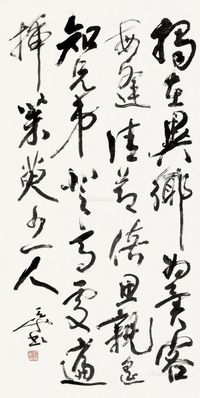 獨在異鄉為異客
每逢佳節倍思親遙
知兄弟登高處遍
插茱萸少一人